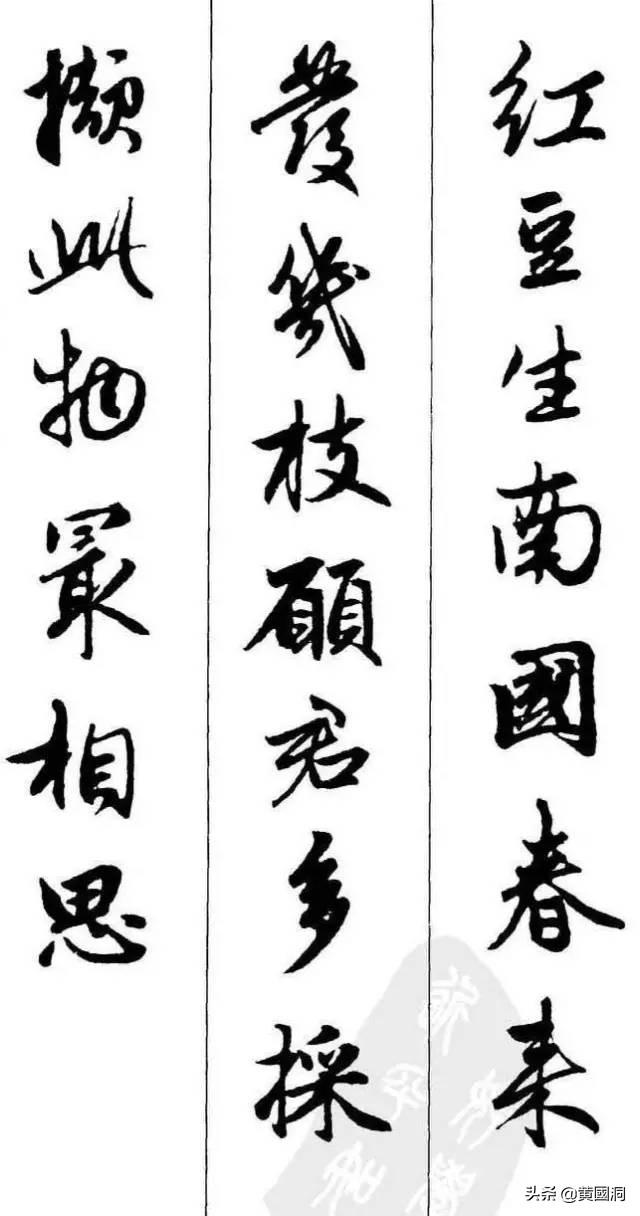 紅豆生南國春来
發幾枝願君多採
擷此物最相思
头条 @黄國洞